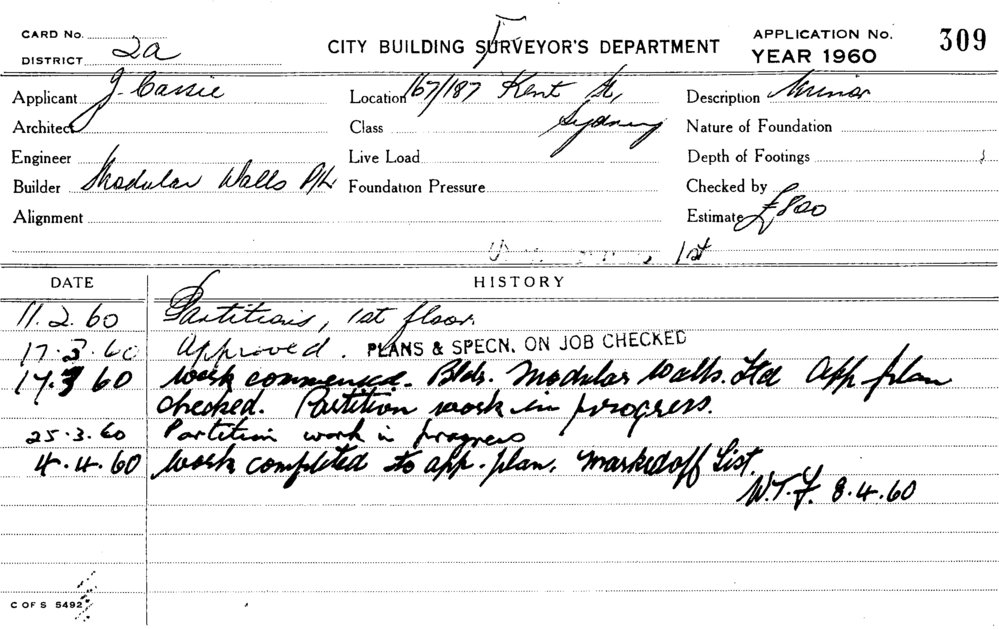 CARD No.
DISTRICT 2a
CITY BUILDING SURVEYOR'S DEPARTMENT
APPLICATION No. 309
YEAR 1960
Applicant J. Cassie
Location 167/187 Kent St,
Sydney
Description Minor
Architect
Class
Nature of Foundation
Engineer
Live Load
Depth of Footings
Builder Modular Walls P/L
Foundation Pressure
Checked by
Alignment
Estimate £800
1st
DATE HISTORY
11.2.60 Partitions, 1st floor.
17.3.60 Approved. PLANS & SPECN. ON JOB CHECKED
17.3.60 Work commenced. Bldr. Modular Walls. Ltd App plan
checked. Partition work in progress.
25.3.60 Partition work in progress
4.4.60 Work completed to app. plan. Marked off List.
W.T.F. 8.4.60
C OF S 5492